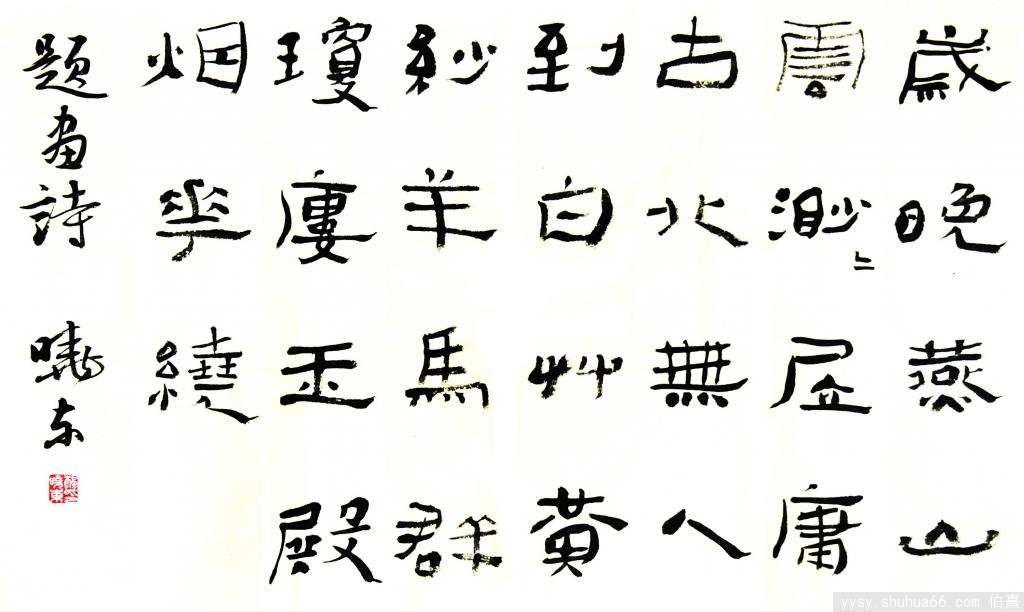 歲晚燕山
雲渺〻居庸
古北無人
到白艸黃
紗羊馬群
瓊廔玉殿
烟華繞
題畫詩 曉东
yysy.shuhua66.com 伯熹